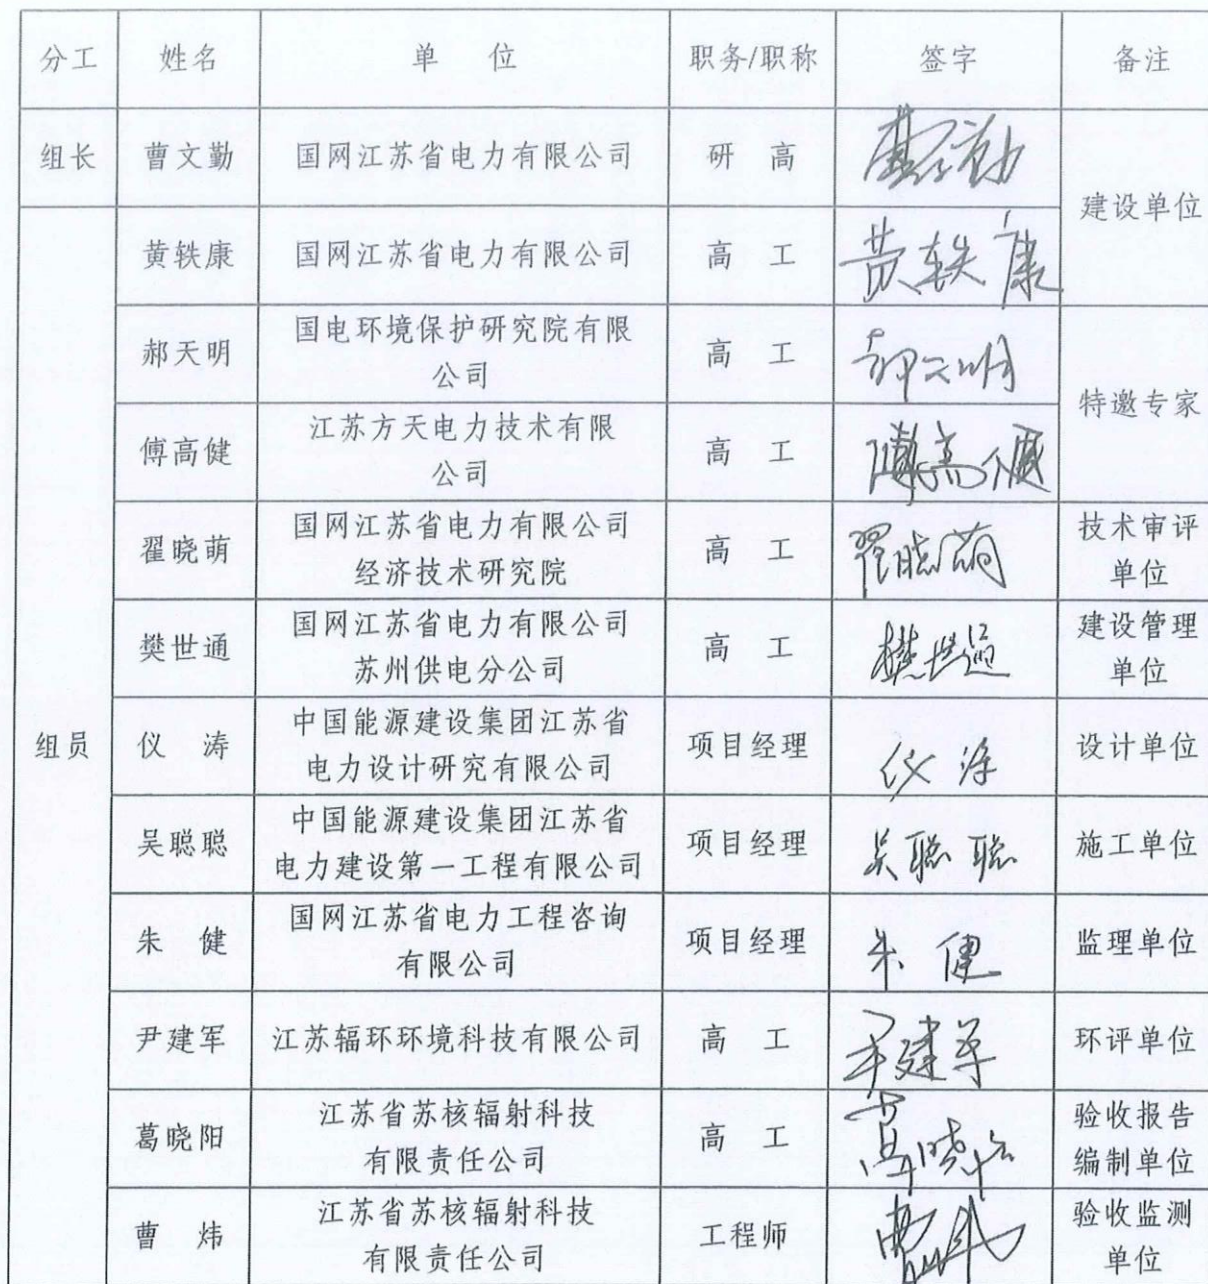 分工 姓名 单 位 职务/职称 签字 备注
组长 曹文勤 国网江苏省电力有限公司 研 高 曹文勤
建设单位
黄轶康 国网江苏省电力有限公司 高 工 黄轶康
郝天明 国电环境保护研究院有限
公司
高 工 郝天明
特邀专家
傅高健 江苏方天电力技术有限
公司
高 工 傅高健
翟晓萌 国网江苏省电力有限公司
经济技术研究院
高 工 翟晓萌 技术审评
单位
樊世通 国网江苏省电力有限公司
苏州供电分公司
高 工 樊世通 建设管理
单位
组员 仪 涛 中国能源建设集团江苏省
电力设计研究有限公司
项目经理 仪涛 设计单位
吴聪聪 中国能源建设集团江苏省
电力建设第一工程有限公司
项目经理 吴聪聪 施工单位
朱 健 国网江苏省电力工程咨询
有限公司
项目经理 朱健 监理单位
尹建军 江苏辐环环境科技有限公司 高 工 尹建军 环评单位
葛晓阳 江苏省苏核辐射科技
有限责任公司
高 工 葛晓阳 验收报告
编制单位
曹 炜 江苏省苏核辐射科技
有限责任公司
工程师 曹炜 验收监测
单位